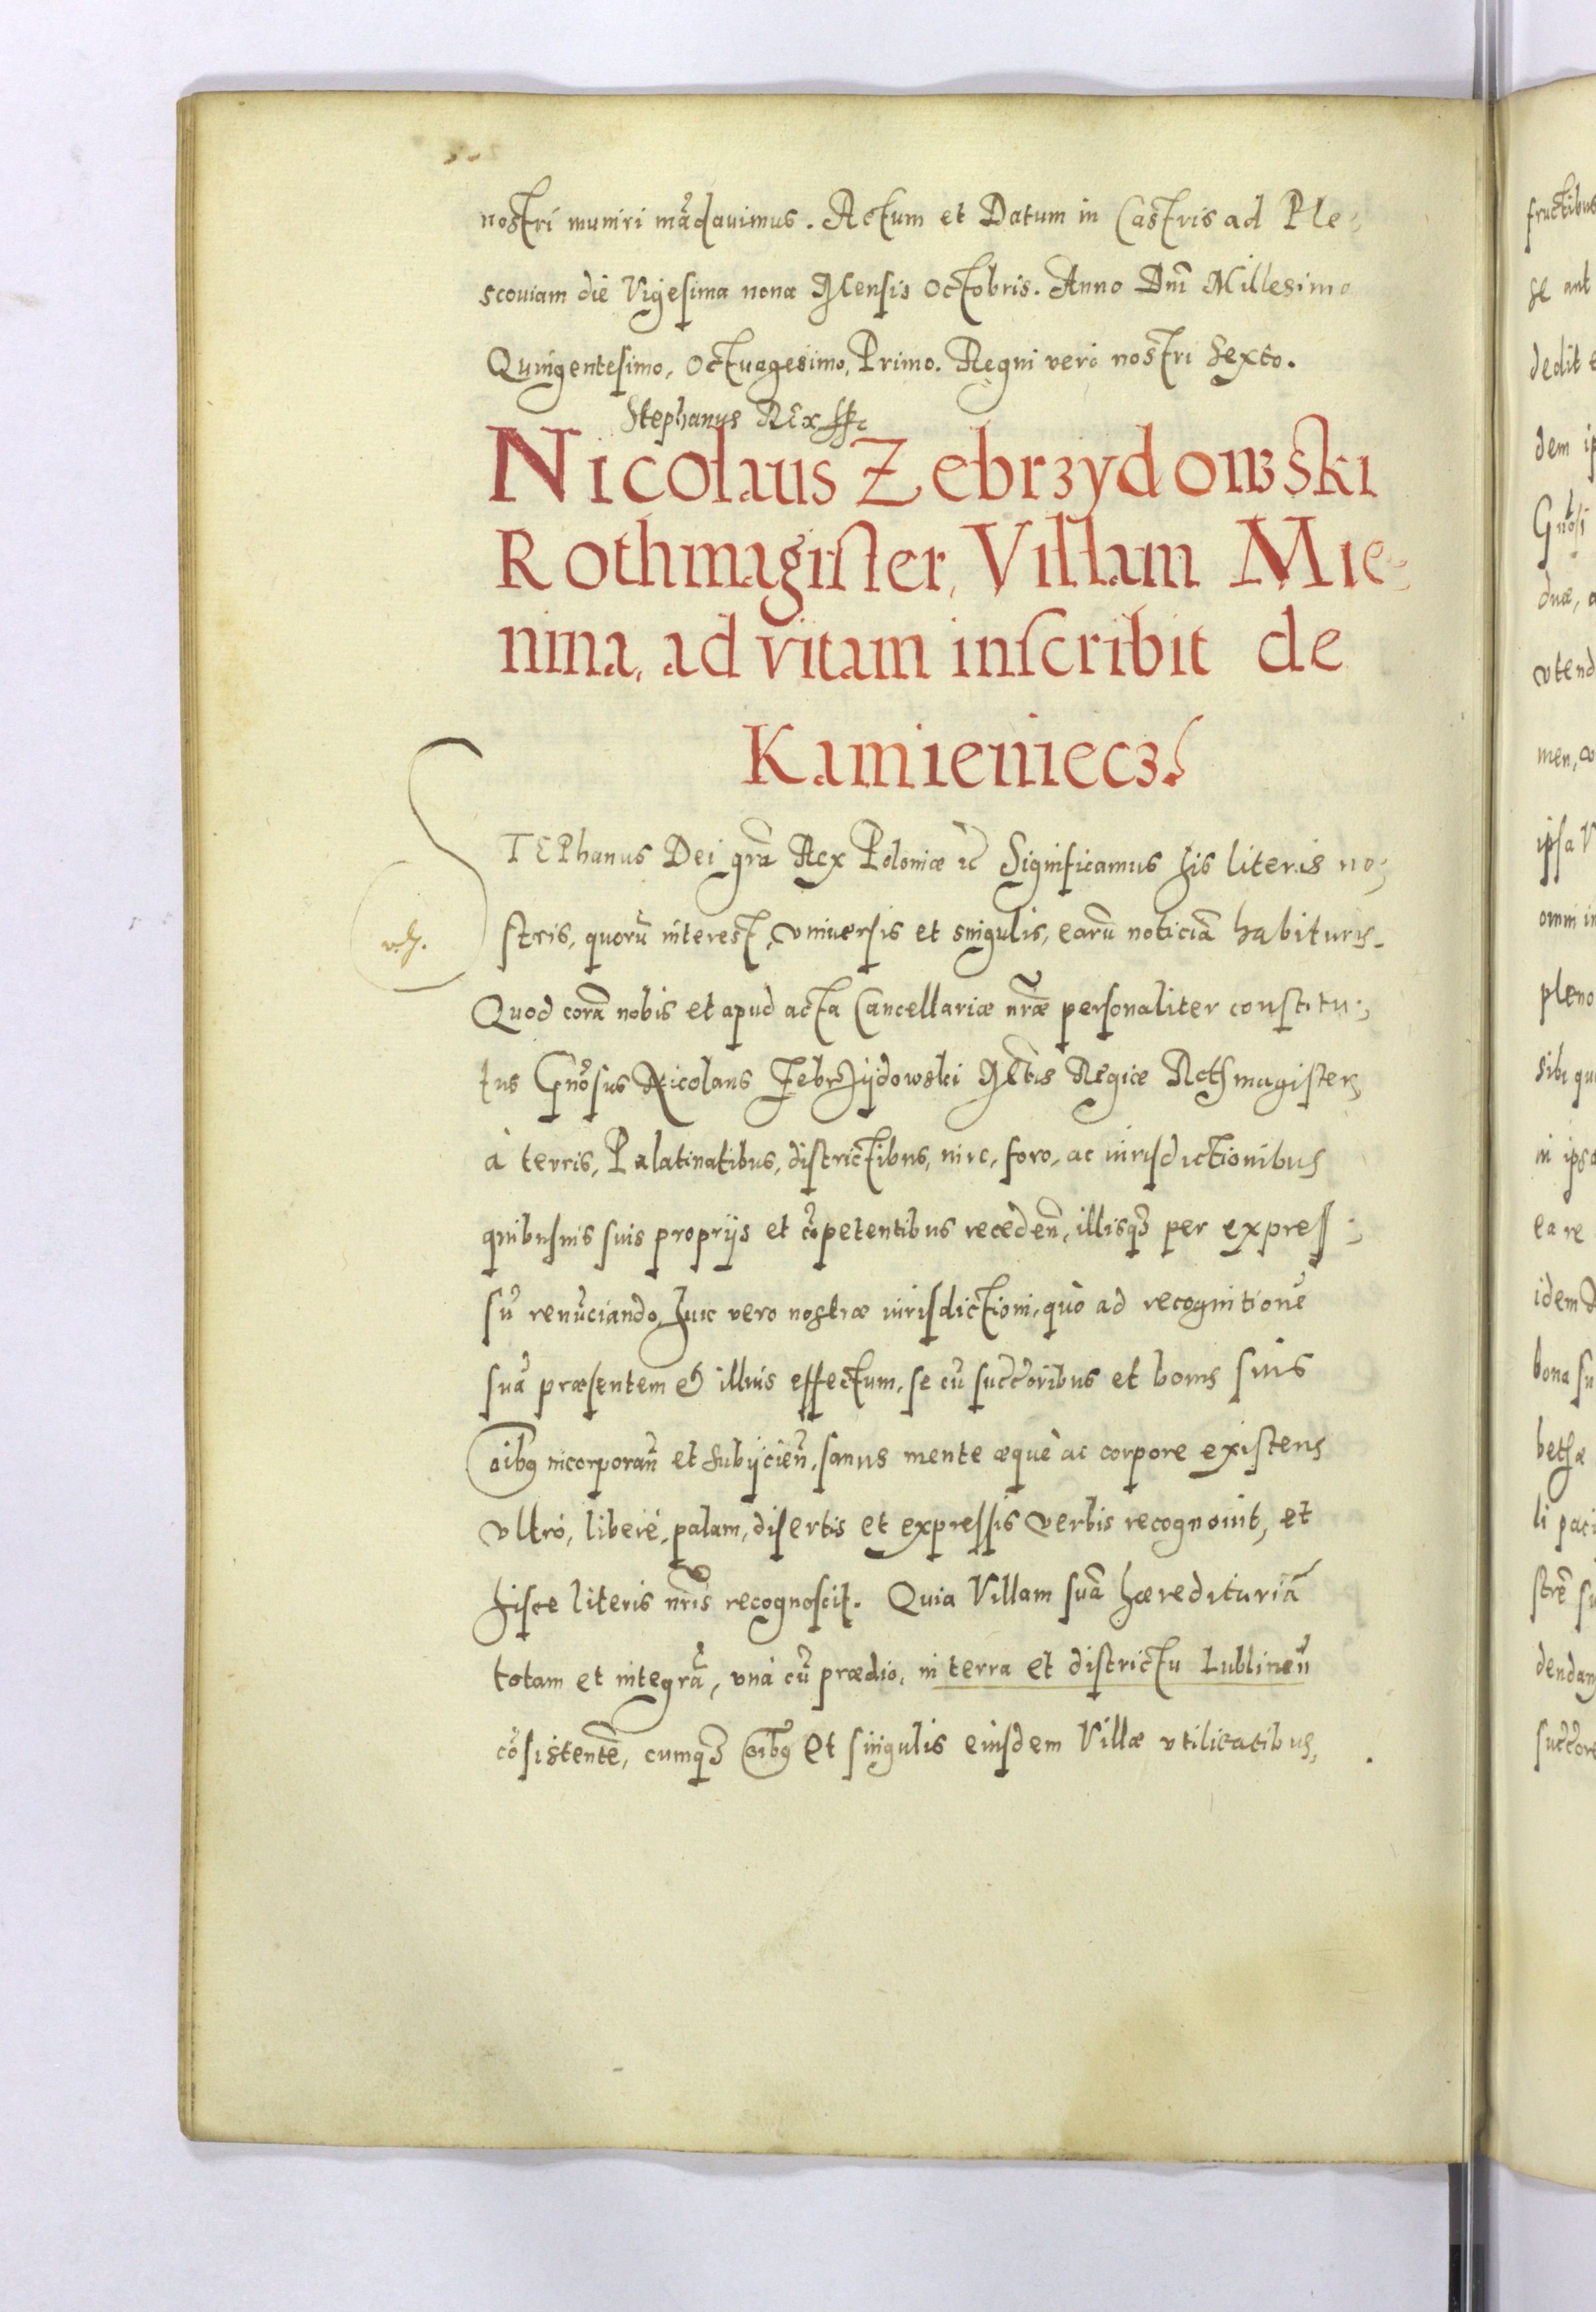 nostri muniri mãdauimus. Actum et Datum in Castris ad Ple-
scouiam die Vigesima nona Mensis Octobris. Anno Dñi Millesimo
Quingentesimo, Octuagesimo, Primo. Regni vero nostri Sexto.
Stephanus REx
Nicolaus Zebrzydowski
Rothmagister, Villam Mie-
nina, ad vitam inscribit de
Kamieniecz.
STEPhanus Dei grã Rex Poloniæ ꝛc Significamus his literis no-
stris, quorũ interest, vniuersis et singulis, earũ noticiã habituris.
Quod corã nobis et apud acta Cancellariæ nr̃æ personaliter constitu-
tus Gnõsus Nicolaus Zebrzijdowski Mtis Regiæ Rothmagister,
à terris, Palatinatibus, districtibus, iure, foro, ac iurisdictionibus
quibusuis suis proprijs et cõpetentibus recedeñ, illisqꝫ per expres-
sũ renũciando, huic vero nostræ iurisdictioni, quò ad recognitionẽ
suã præsentem et illius effectum, se cũ succ̃oribus et bonis suis
oĩbꝰ incorporañ et subijcieñ, sanus mente æquè ac corpore existens
vltrò, liberè, palam, disertis et expressis verbis recognouit, et
hisce literis nr̃is recognoscit. Quia Villam suã hæreditariã
totam et integrã, vnà cũ prædio, in terra et districtu Lublineñ
cõsistentẽ, cumqꝫ oĩbꝰ et singulis eiusdem Villæ vtilitatibus,
fructibus
se ant
dedit
dem ip
Gnosi
duæ, a
vtend
men, co
ipsa V
omni in
pleno
sibi qu
in ipsa
ea re
idem
bona su
bethæ
li paci
strẽ su
dendam
succ̃ore